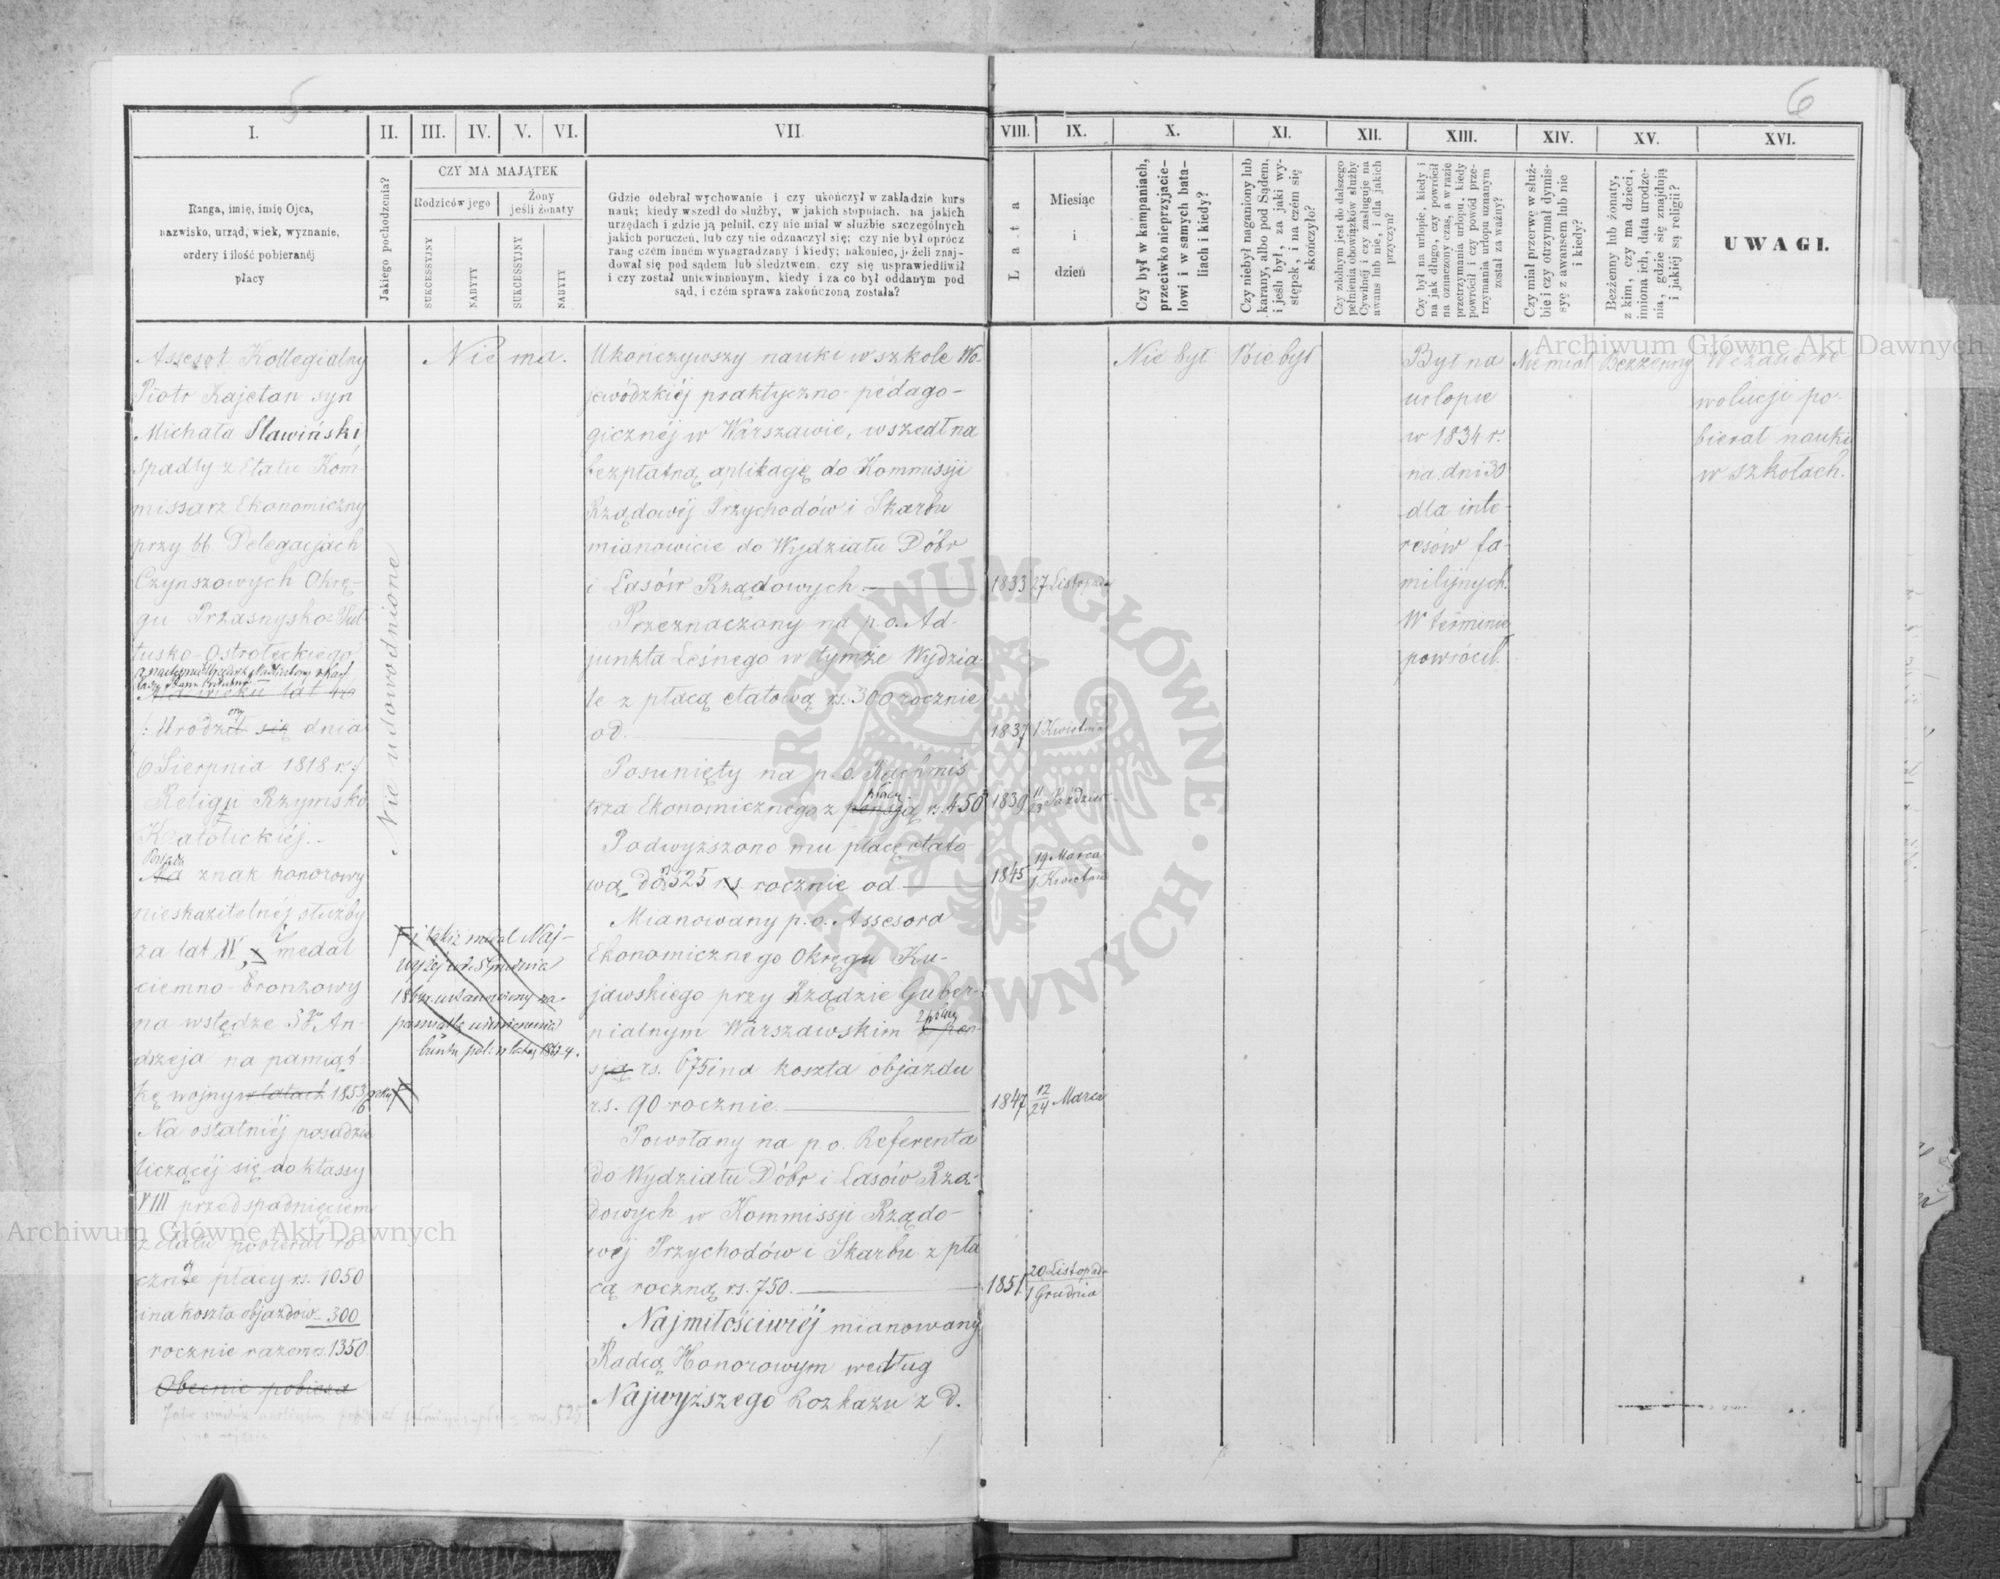 5
6
I.
II.
III.
IV.
V.
VI.
VII
VIII.
IX.
X.
XI.
XII.
XIII.
XIV.
XV.
XVI.
Ranga, imię, imię Ojca,
nazwisko, urząd, wiek, wyznanie,
ordery i ilość pobieranéj
płacy
Jakiego pochodzenia?
CZY MA MAJĄTEK
Rodziców jego
Żony
jeśli żonaty
SUKCESSYJNY
NABYTY
SUKCESSYJNY
NABYTY
Gdzie odebrał wychowanie i czy ukończył w zakładzie kurs
nauk; kiedy wszedł do służby, w jakich stopniach, na jakich
urzędach i gdzie ją pełnił, czy nie miał w służbie szczególnych
jakich poruczeń, lub czy nie odznaczył się; czy nie był oprócz
rang czém inném wynagradzany i kiedy; nakoniec, jeżeli znaj-
dował się pod sądem lub śledztwem, czy się usprawiedliwił
i czy został uniewinnionym, kiedy i za co był oddanym pod
sąd, i czém sprawa zakończoną została?
Lata
Miesiąc
i
dzień
Czy był w kampaniach,
przeciwko nieprzyjacie-
lowi i w samych bata-
liach i kiedy?
Czy niebył naganiony lub
karany, albo pod Sądem,
i jeśli był, za jaki wy-
stępek, i na czém się
skończyło?
Czy zdolnym jest do dalszego
pełnienia obowiązków służby
Cywilnéj i czy zasługuje na
awans lub nie, i dla jakich
przyczyn?
Czy był na urlopie, kiedy i
na jak długo, czy powrócił
na oznaczony czas, a w razie
przetrzymania urlopu, kiedy
powrócił i czy powód prze-
trzymania urlopu uznanym
został za ważny?
Czy miał przerwę w służ-
bie i czy otrzymał dymis-
syę z awansem lub nie
i kiedy?
Bezżenny lub żonaty,
z kim, czy ma dzieci,
imiona ich, data urodze-
nia, gdzie się znajdują
i jakiéj są religii?
UWAGI.
Assesor Kollegialny
Piotr Kajetan syn
Michała Sławiński
spadły z Etatu Kom-
missarz Ekonomiczny
przy bb Delegacjach
Czynszowych Okrę-
gu Przasnysko-Puł-
tusko-Ostrołęckiego
Ma wieku lat 46
: Urodził się dnia
ony
6 Sierpnia 1818 r.:
Religii Rzymsko
Katolickiéj.-
Posiada
Ma znak honorowy
nieskazitelnéj służby
za lat XV, i medal
ciemno-bronzowy
na wstędze Sgo An-
drzeja na pamiąt-
kę wojny w latach 1853/6
Na ostatniéj posadzie
liczącéj się do klassy
VIII przed spadnięciem
z etatu pobierał ro-
cznie płacy rs. 1050
i na koszta objazdów 300
rocznie razem rs. 1350
Obecnie pobiera
525
Nie udowodnione
Nie ma.
i takiż medal Naj-
pamiątkę uśmierzenia
buntu pol: w latach 1863-4.
Ukończywszy nauki w szkole Wo-
jewódzkiéj praktyczno-pedago-
gicznéj w Warszawie, wszedł na
bezpłatną aplikację do Kommissji
Rządowéj Przychodów i Skarbu
mianowicie do Wydziału Dóbr
i Lasów Rządowych
1833 27 Listopada
Przeznaczony na p.o. Ad-
junkta Leśnego w tymże Wydzia-
le z płacą etatową rs. 300 rocznie
od.
1837 1 Kwietnia
Posunięty na p.o. Rachmis-
trza Ekonomicznego z pensją rs. 450
płacą
1839 11/23 Paździer.
Podwyższono mu płacę etato-
wą do rs. 525 rs. rocznie od.
1845 19 Marca
1 Kwietnia
Mianowany p.o. Assesora
Ekonomicznego Okręgu Ku-
jawskiego przy Rządzie Guber-
nialnym Warszawskim z pen-
z płacą
sją rs. 675 i na koszta objazdu
rs. 90 rocznie.
1847 12/24 Marca
Powołany na p.o. Referenta
do Wydziału Dóbr i Lasów Rzą-
dowych w Kommissji Rządo-
wéj Przychodów i Skarbu z pła
cą roczną rs. 750.
1851 20 Listopada
1 Grudnia
Najmiłościwiéj mianowany
Radcą Honorowym według
Najwyższego Rozkazu z d.
Nie był
Nie był
Był na
urlopie
w 1834 r.
na dni 30
dla inte-
resów fa-
milijnych.
W terminie
powrócił.
Nie miał
Bezżenny
W czasie re-
wolucji po-
bierał nauki
w szkołach.
Archiwum Główne Akt Dawnych
Archiwum Główne Akt Dawnych
ARCHIWUM GŁÓWNE · AKT DAWNYCH ·